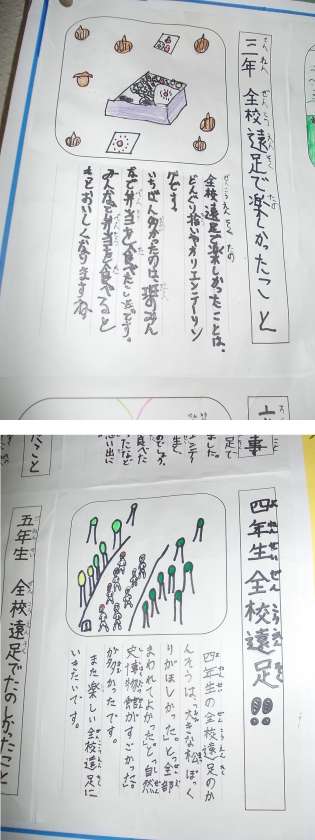 三年 全校遠足で楽しかったこと
全校遠足で楽しかったことは、
どんぐり拾いやオリエンテーリン
グです。
いちばん多かったのは、班のみん
なで弁当を食べたことです。
みんなで弁当を食べると
もっとおいしくなりますね
四年生 全校遠足!!
四年生の全校遠足のか
んそうは、「大きな松ぼっく
りがほしかった。」と「全部
まわれてよかった。」と「自然
史博物館がすごかった。」
が多かったです。
また楽しい全校遠足に
いきたいです。
五年生 全校遠足でたのしかったこと